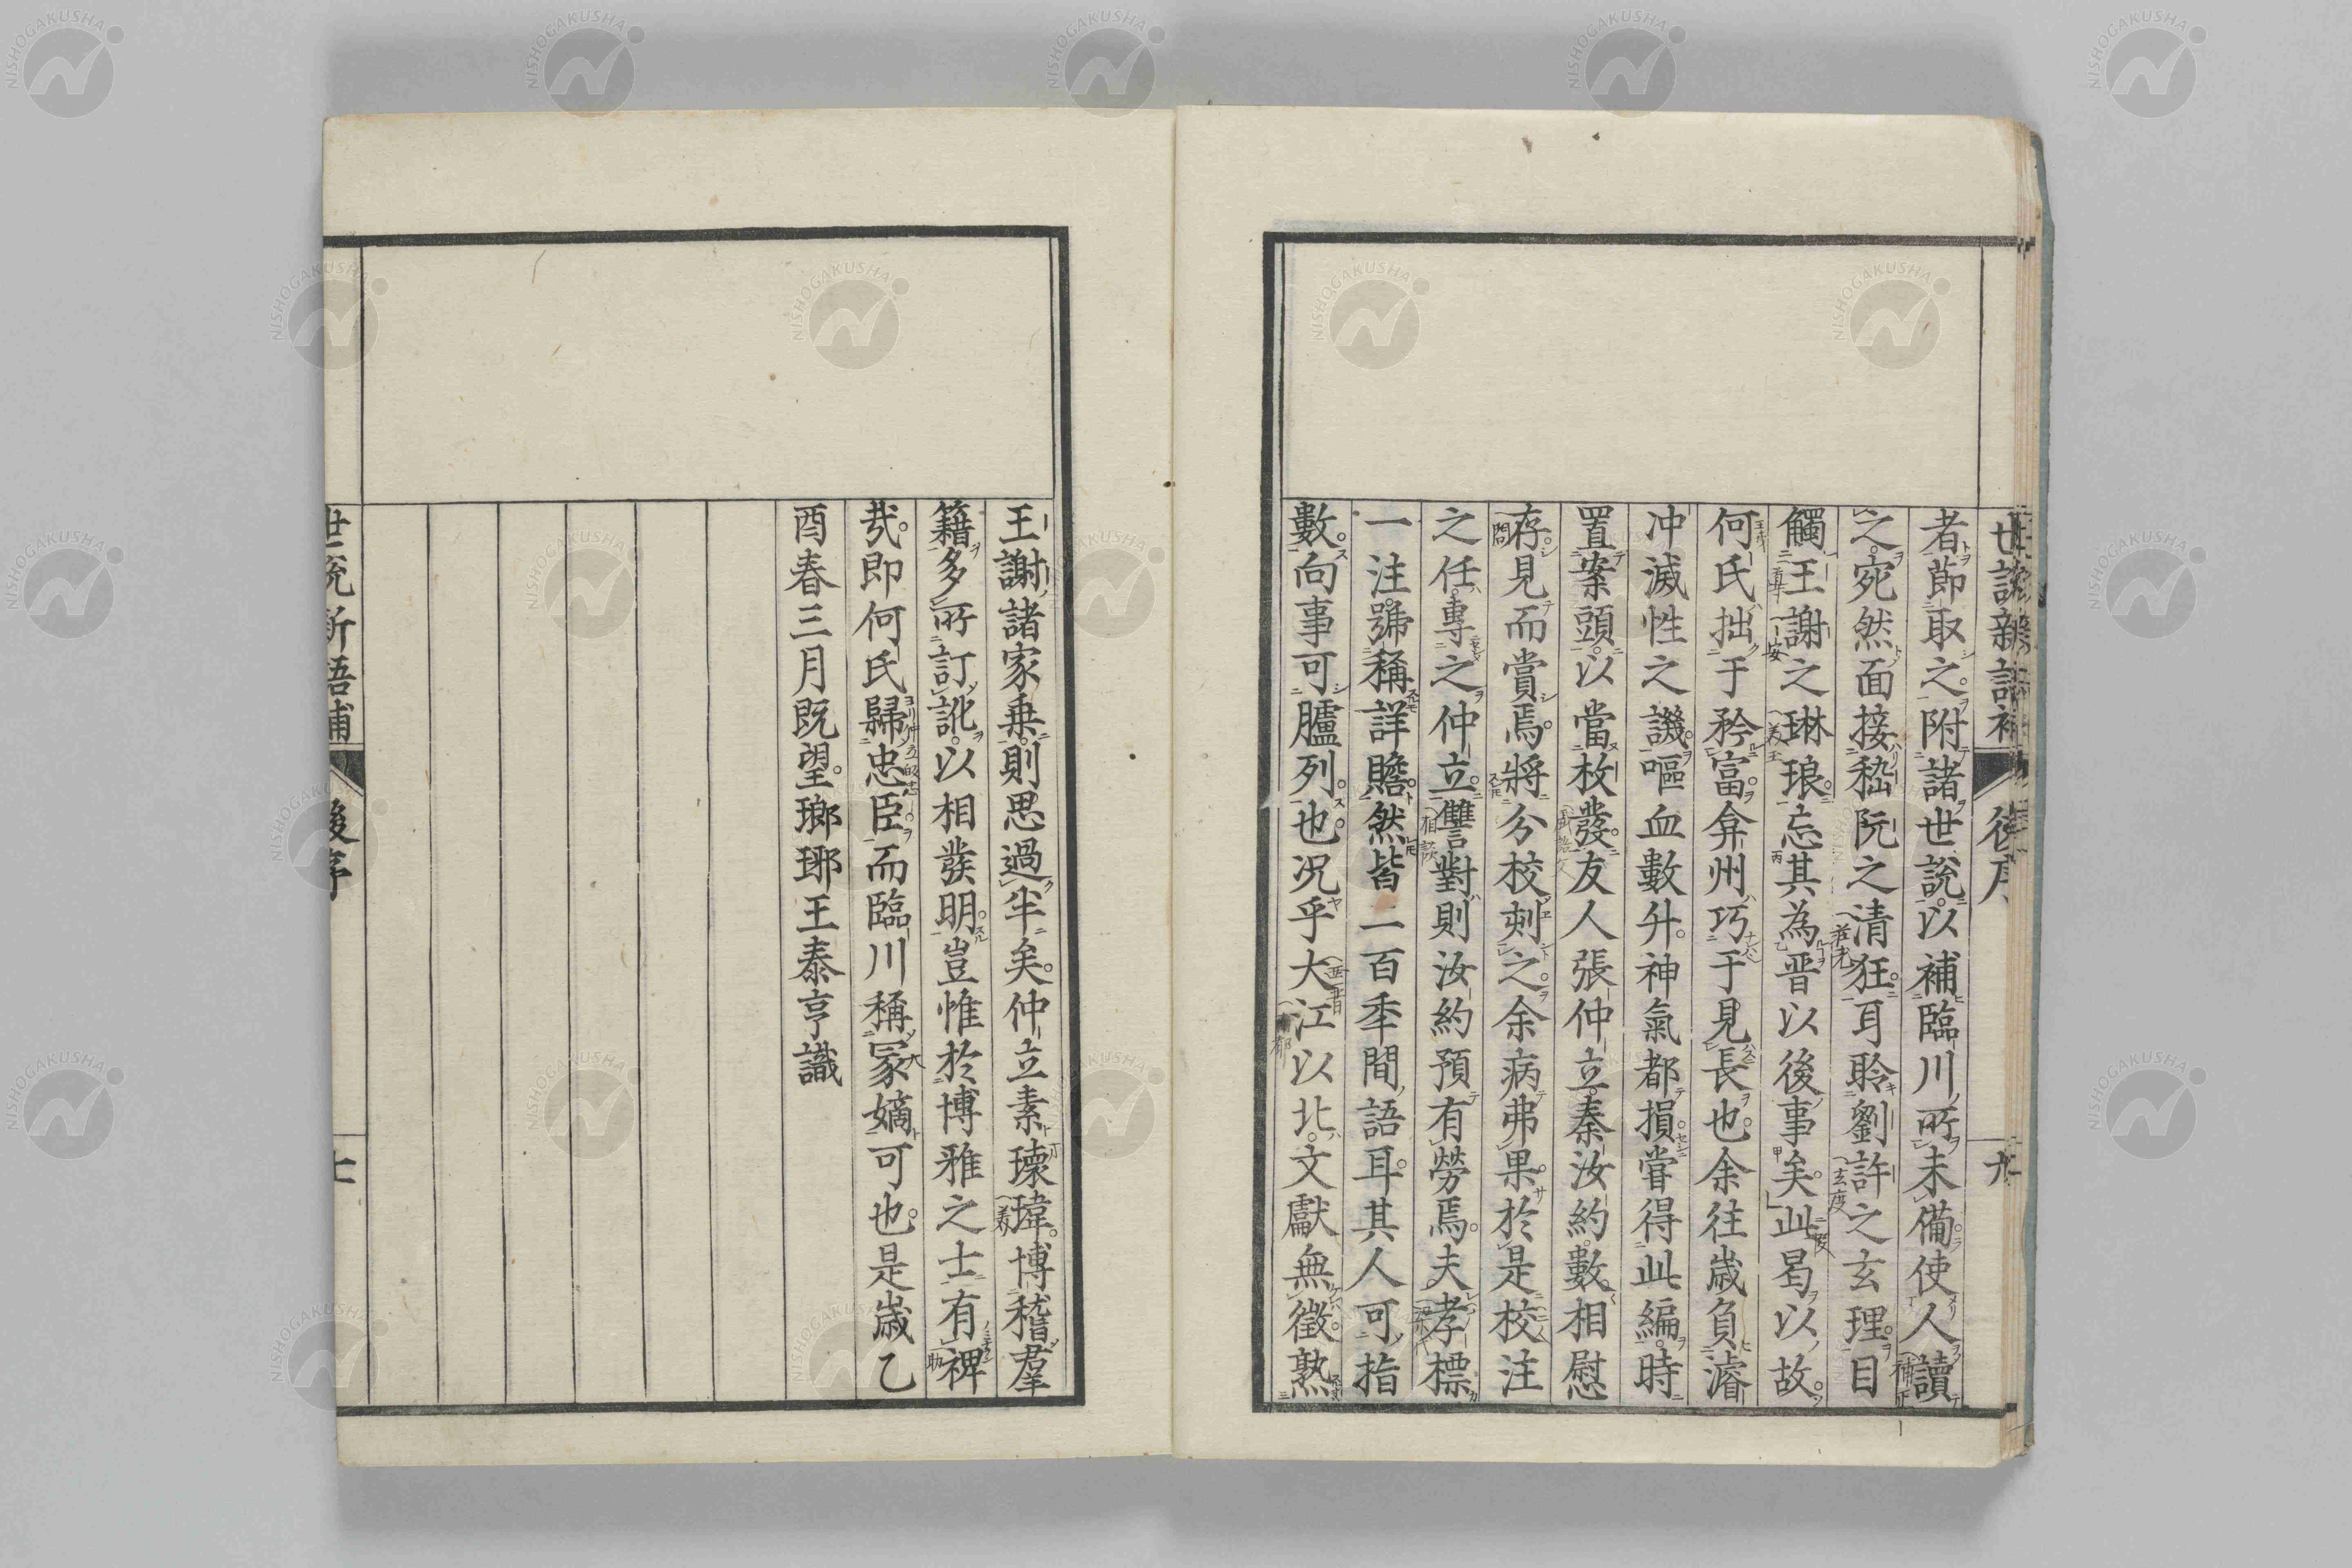 者節取之附諸世說以補臨川所未備使人讀
之宛然面接嵇阮之清狂耳聆劉許之玄理目
觸王謝之琳琅忘其為晉以後事矣此曷以故
何氏拙于矜富弇州巧于見長也余徃歲負濬
沖滅性之譏嘔血數升神氣都損嘗得此編時
置案頭以當枚發友人張仲立秦汝約數相慰
存見而賞焉將分校刻之余病弗果於是校注
之任專之仲立讐對則汝約預有勞焉夫孝標
一注號稱詳贍然皆二百年間語耳其人可指
數向事可臚列也况乎大江以北文獻無徵熟
王謝諸家乗則思過半矣仲立素瓌瑋博稽羣
籍多所訂訛以相發明豈惟於博雅之士有裨
哉即何氏歸忠臣而臨川稱冡嫡可也是歲乙
酉春三月既望瑯琊王泰亨識
世說新語補
後序
NISHOGAKUSHA